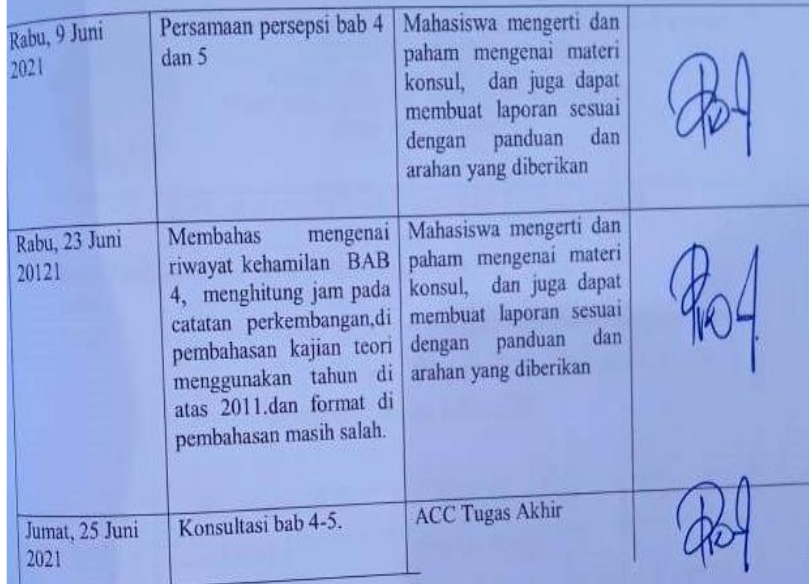 Rabu, 9 Juni
2021
Persamaan persepsi bab 4
dan 5
Mahasiswa mengerti dan
paham mengenai materi
konsul, dan juga dapat
membuat laporan sesuai
dengan panduan dan
arahan yang diberikan
Rabu, 23 Juni
20121
Membahas mengenai
riwayat kehamilan BAB
4, menghitung jam pada
catatan perkembangan,di
pembahasan kajian teori
menggunakan tahun di
atas 2011.dan format di
pembahasan masih salah.
Mahasiswa mengerti dan
paham mengenai materi
konsul, dan juga dapat
membuat laporan sesuai
dengan panduan dan
arahan yang diberikan
Jumat, 25 Juni
2021
Konsultasi bab 4-5.
ACC Tugas Akhir